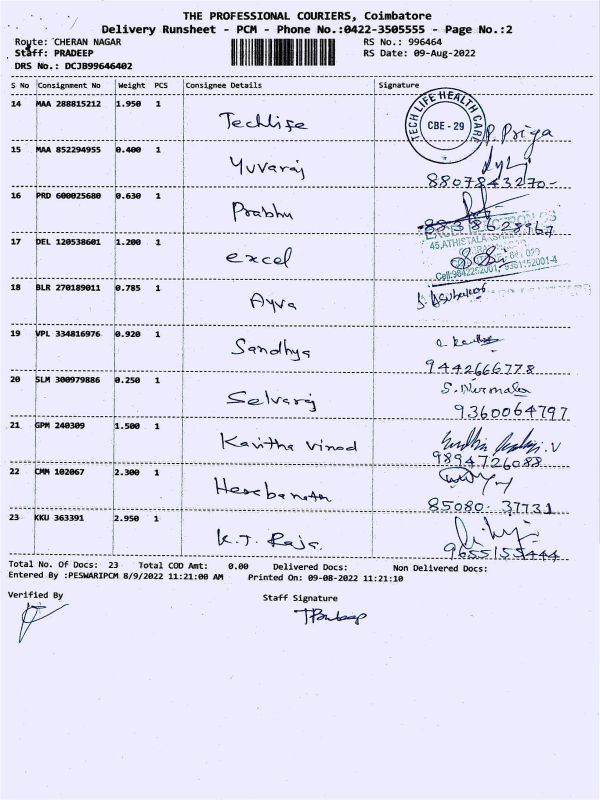 THE PROFESSIONAL COURIERS, Coimbatore
Delivery Runsheet - PCM - Phone No.:0422-3505555 - Page No.:2
Route: CHERAN NAGAR RS No.: 996464
Staff: PRADEEP RS Date: 09-Aug-2022
DRS No.: DCJB99646402
S No Consignment No Weight PCS Consignee Details Signature
14 MAA 288815212 1.950 1 Techlife TECH LIFE HEALTH CARE CBE - 29 P. Priya
15 MAA 852294955 0.400 1 Yuvaraj 8807843270-
16 PRD 600025680 0.630 1 Prabhu 8838628967
17 DEL 120538601 1.200 1 excel
18 BLR 270189011 0.785 1 Ayva
19 VPL 334816976 0.920 1 Sandhya 9442666778
20 SLM 300979886 0.250 1 Selvaraj S. Nirmala 9360064797
21 GPM 240309 1.500 1 Kavitha vinod 9894726088
22 CMM 102067 2.300 1 85080-37731
23 KKU 363391 2.950 1 K.J. Raja. 9655155444
Total No. Of Docs: 23 Total COD Amt: 0.00 Delivered Docs: Non Delivered Docs:
Entered By :PESWARIPCM 8/9/2022 11:21:00 AM Printed On: 09-08-2022 11:21:10
Verified By Staff Signature